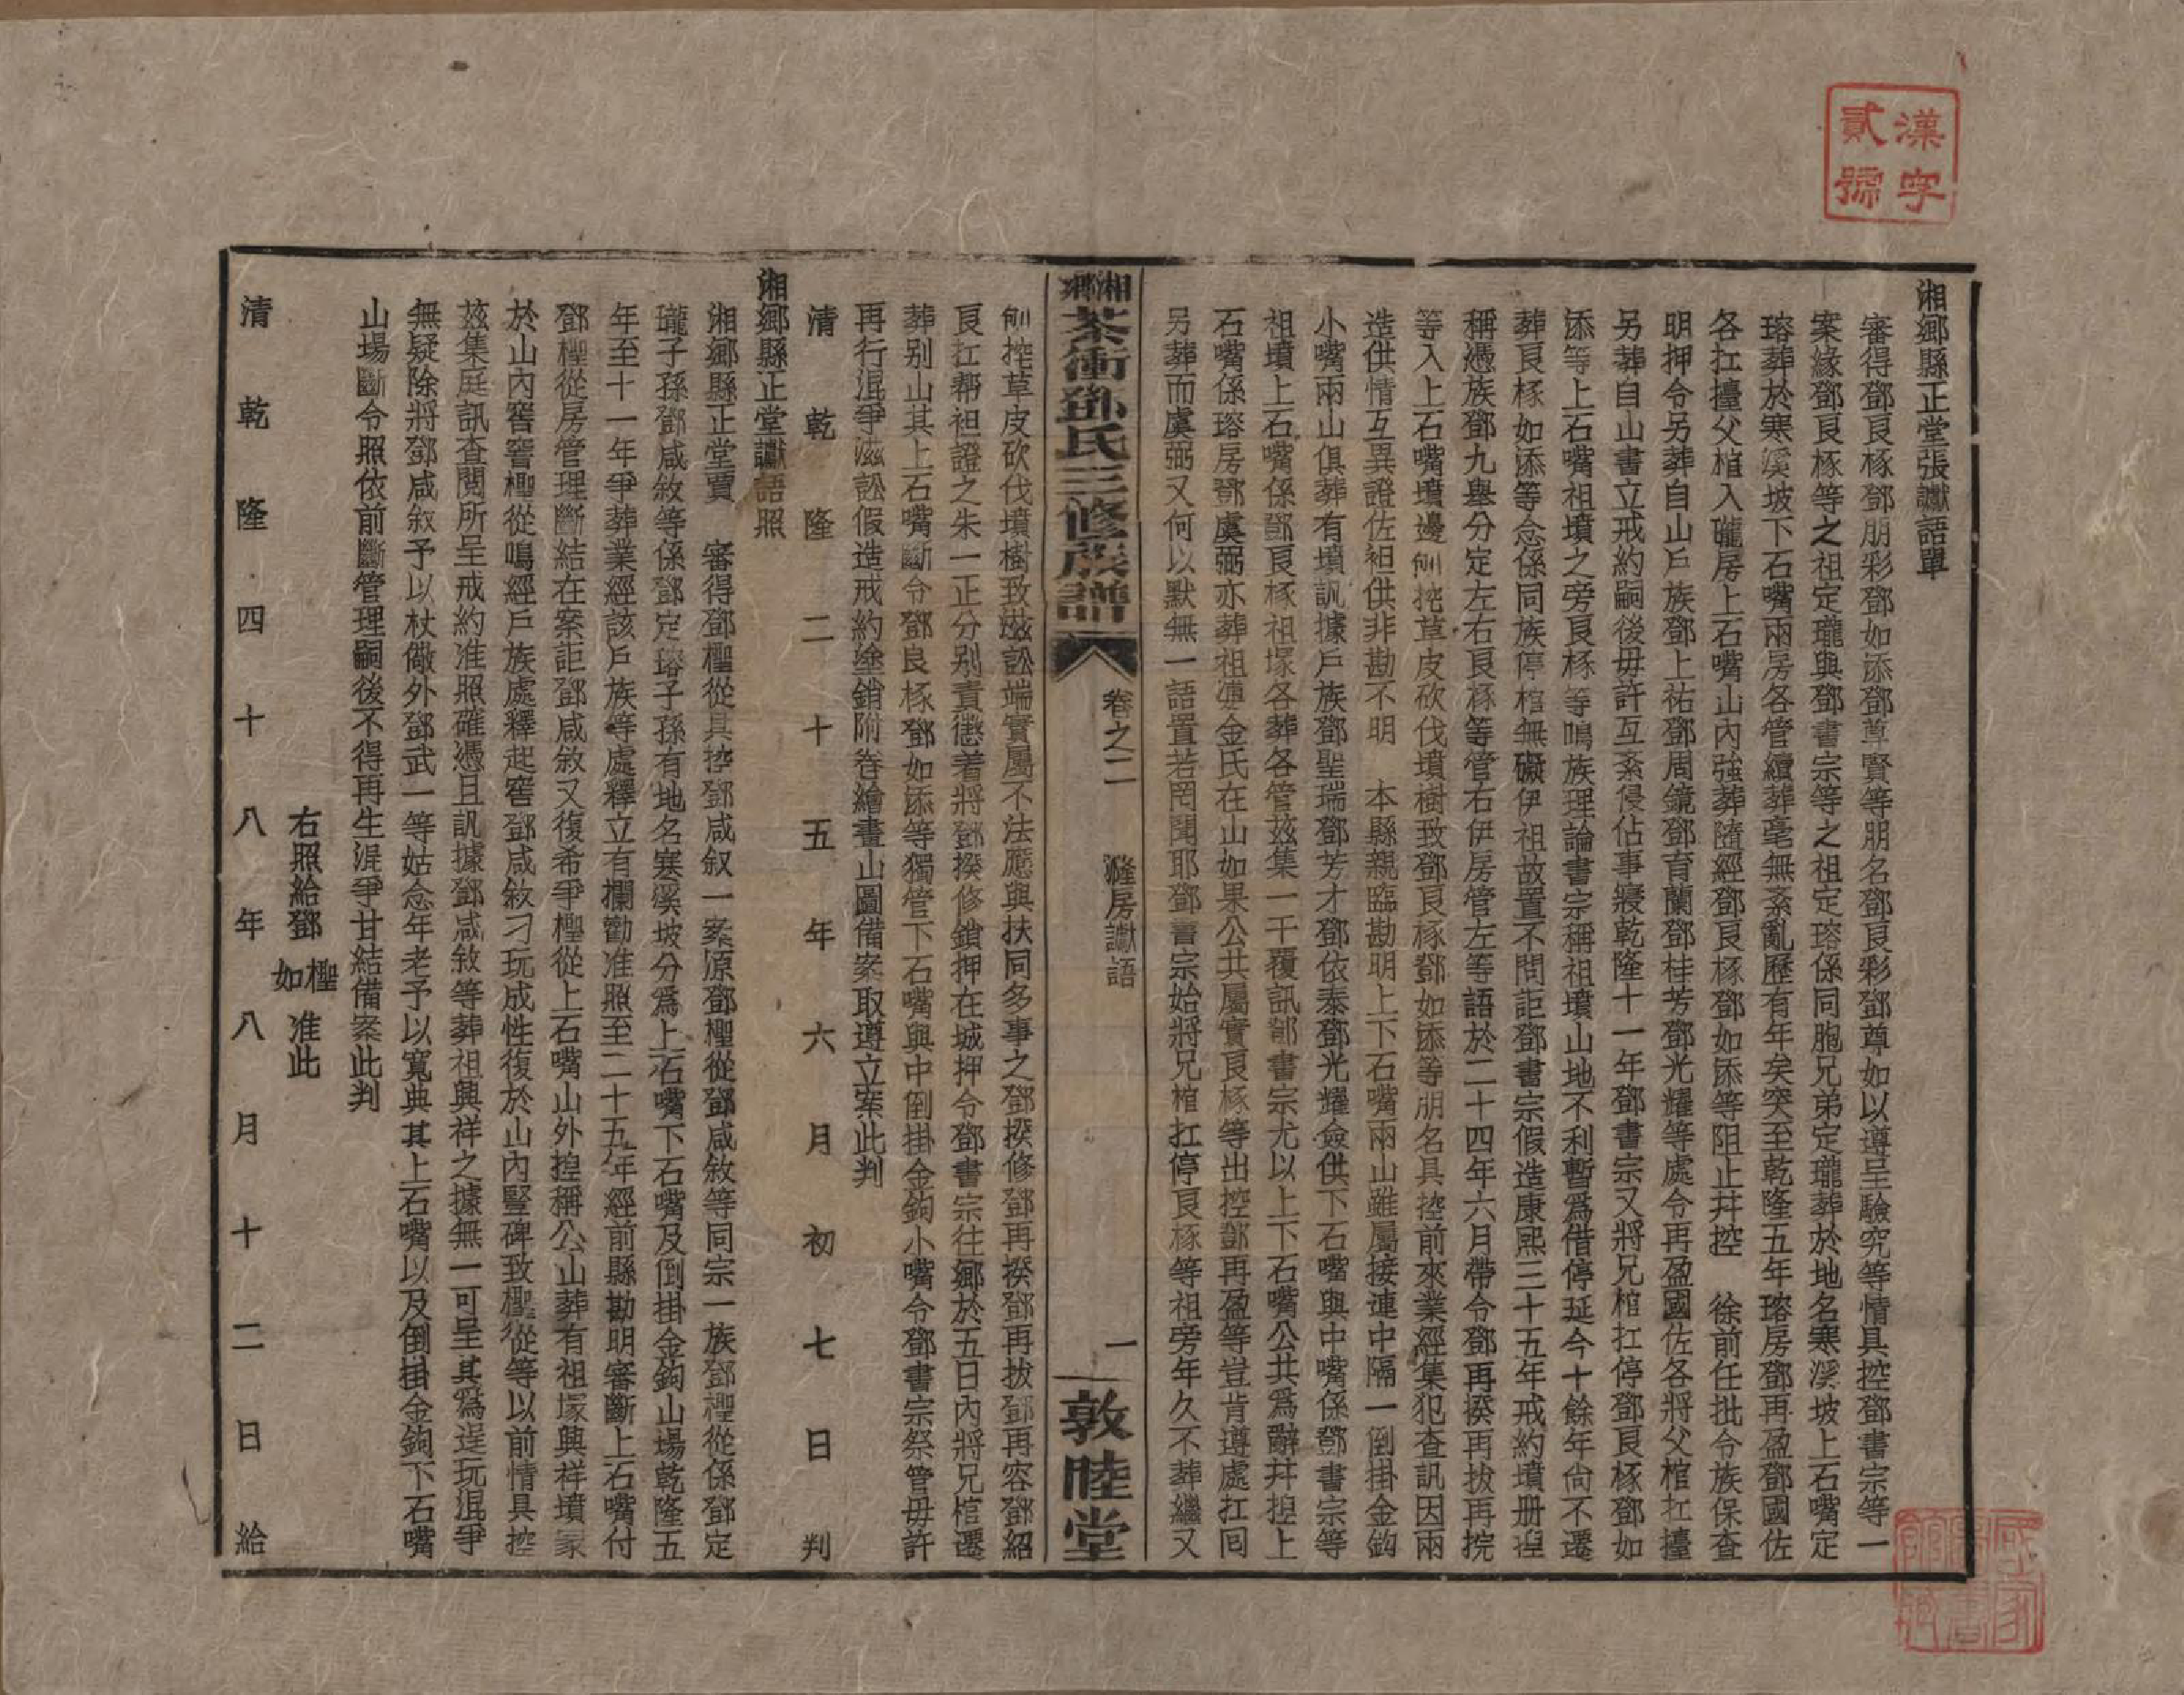 漢字
貳號
湘鄉縣正堂張讞語單
審得鄧良㭬鄧朋彩鄧如添鄧尊賢等朋名鄧良彩鄧尊如以遵呈驗究等情具控鄧書宗等一
案緣鄧良㭬等之祖定瓏與鄧書宗等之祖定瑢係同胞兄弟定瓏葬於地名寒溪坡上石嘴定
瑢葬於寒溪坡下石嘴兩房各管續葬毫無紊亂歷有年矣突至乾隆五年瑢房鄧再盈鄧國佐
各扛擡父棺入瓏房上石嘴山內強葬隨經鄧良㭬鄧如添等阻止幷控 徐前任批令族保查
明押令另葬自山戶族鄧上祐鄧周鏡鄧育蘭鄧桂芳鄧光耀等處令再盈國佐各將父棺扛擡
另葬自山書立戒約嗣後毋許互紊侵佔事寢乾隆十一年鄧書宗又將兄棺扛停鄧良㭬鄧如
添等上石嘴祖墳之旁良㭬等鳴族理論書宗稱祖墳山地不利暫爲借停延今十餘年尙不遷
葬良㭬如添等念係同族停棺無礙伊祖故置不問詎鄧書宗假造康熙三十五年戒約墳册捏
稱憑族鄧九臯分定左右良㭬等管右伊房管左等語於二十四年六月帶令鄧再揆再拔再捖
等入上石嘴墳邊刎挖草皮砍伐墳樹致鄧良㭬鄧如添等朋名具控前來業經集犯查訊因兩
造供情互異證佐袒供非勘不明 本縣親臨勘明上下石嘴兩山雖屬接連中隔一倒掛金鈎
小嘴兩山俱葬有墳訊據戶族鄧聖瑞鄧芳才鄧依泰鄧光耀僉供下石嘴與中嘴係鄧書宗等
祖墳上石嘴係鄧良㭬祖塚各葬各管茲集一干覆訊鄧書宗尤以上下石嘴公共爲辭幷捏上
石嘴係瑢房鄧虞弼亦葬祖連金氏在山如果公共屬實良㭬等出控鄧再盈等豈肯遵處扛囘
另葬而虞弼又何以默無一語置若罔聞耶鄧書宗始將兄棺扛停良㭬等祖旁年久不葬繼又
湘鄉茶衝鄧氏三修族譜
卷之二
瓏房讞語
一
敦睦堂
刎挖草皮砍伐墳樹致滋訟端實屬不法應與扶同多事之鄧揆修鄧再揆鄧再拔鄧再容鄧紹
良扛幫袒證之朱一正分別責懲着將鄧揆修鎖押在城押令鄧書宗往鄉於五日內將兄棺遷
葬別山其上石嘴斷令鄧良㭬鄧如添等獨管下石嘴與中倒掛金鈎小嘴令鄧書宗祭管毋許
再行混爭滋訟假造戒約塗銷附卷繪畫山圖備案取遵立案此判
清乾隆二十五年六月初七日判
湘鄉縣正堂讞語照
湘鄉縣正堂賈 審得鄧檉從具控鄧咸叙一案原鄧檉從鄧咸敘等同宗一族鄧檉從係鄧定
瓏子孫鄧咸敘等係鄧定瑢子孫有地名寒溪坡分爲上石嘴下石嘴及倒掛金鈎山場乾隆五
年至十一年爭葬業經該戶族等處釋立有欄勸准照至二十五年經前縣勘明審斷上石嘴付
鄧檉從房管理斷結在案詎鄧咸敘又復希爭檉從上石嘴山外捏稱公山葬有祖塚興祥墳冢
於山內窖窖檉從鳴經戶族處釋起窖鄧咸敘刁玩成性復於山內豎碑致檉從等以前情具控
茲集庭訊查閱所呈戒約准照確憑且訊據鄧咸敘等葬祖興祥之據無一可呈其爲逞玩混爭
無疑除將鄧咸叙予以杖儆外鄧武一等姑念年老予以寬典其上石嘴以及倒掛金鈎下石嘴
山場斷令照依前斷管理嗣後不得再生混爭甘結備案此判
右照給鄧檉如准此
清乾隆四十八年八月十二日給